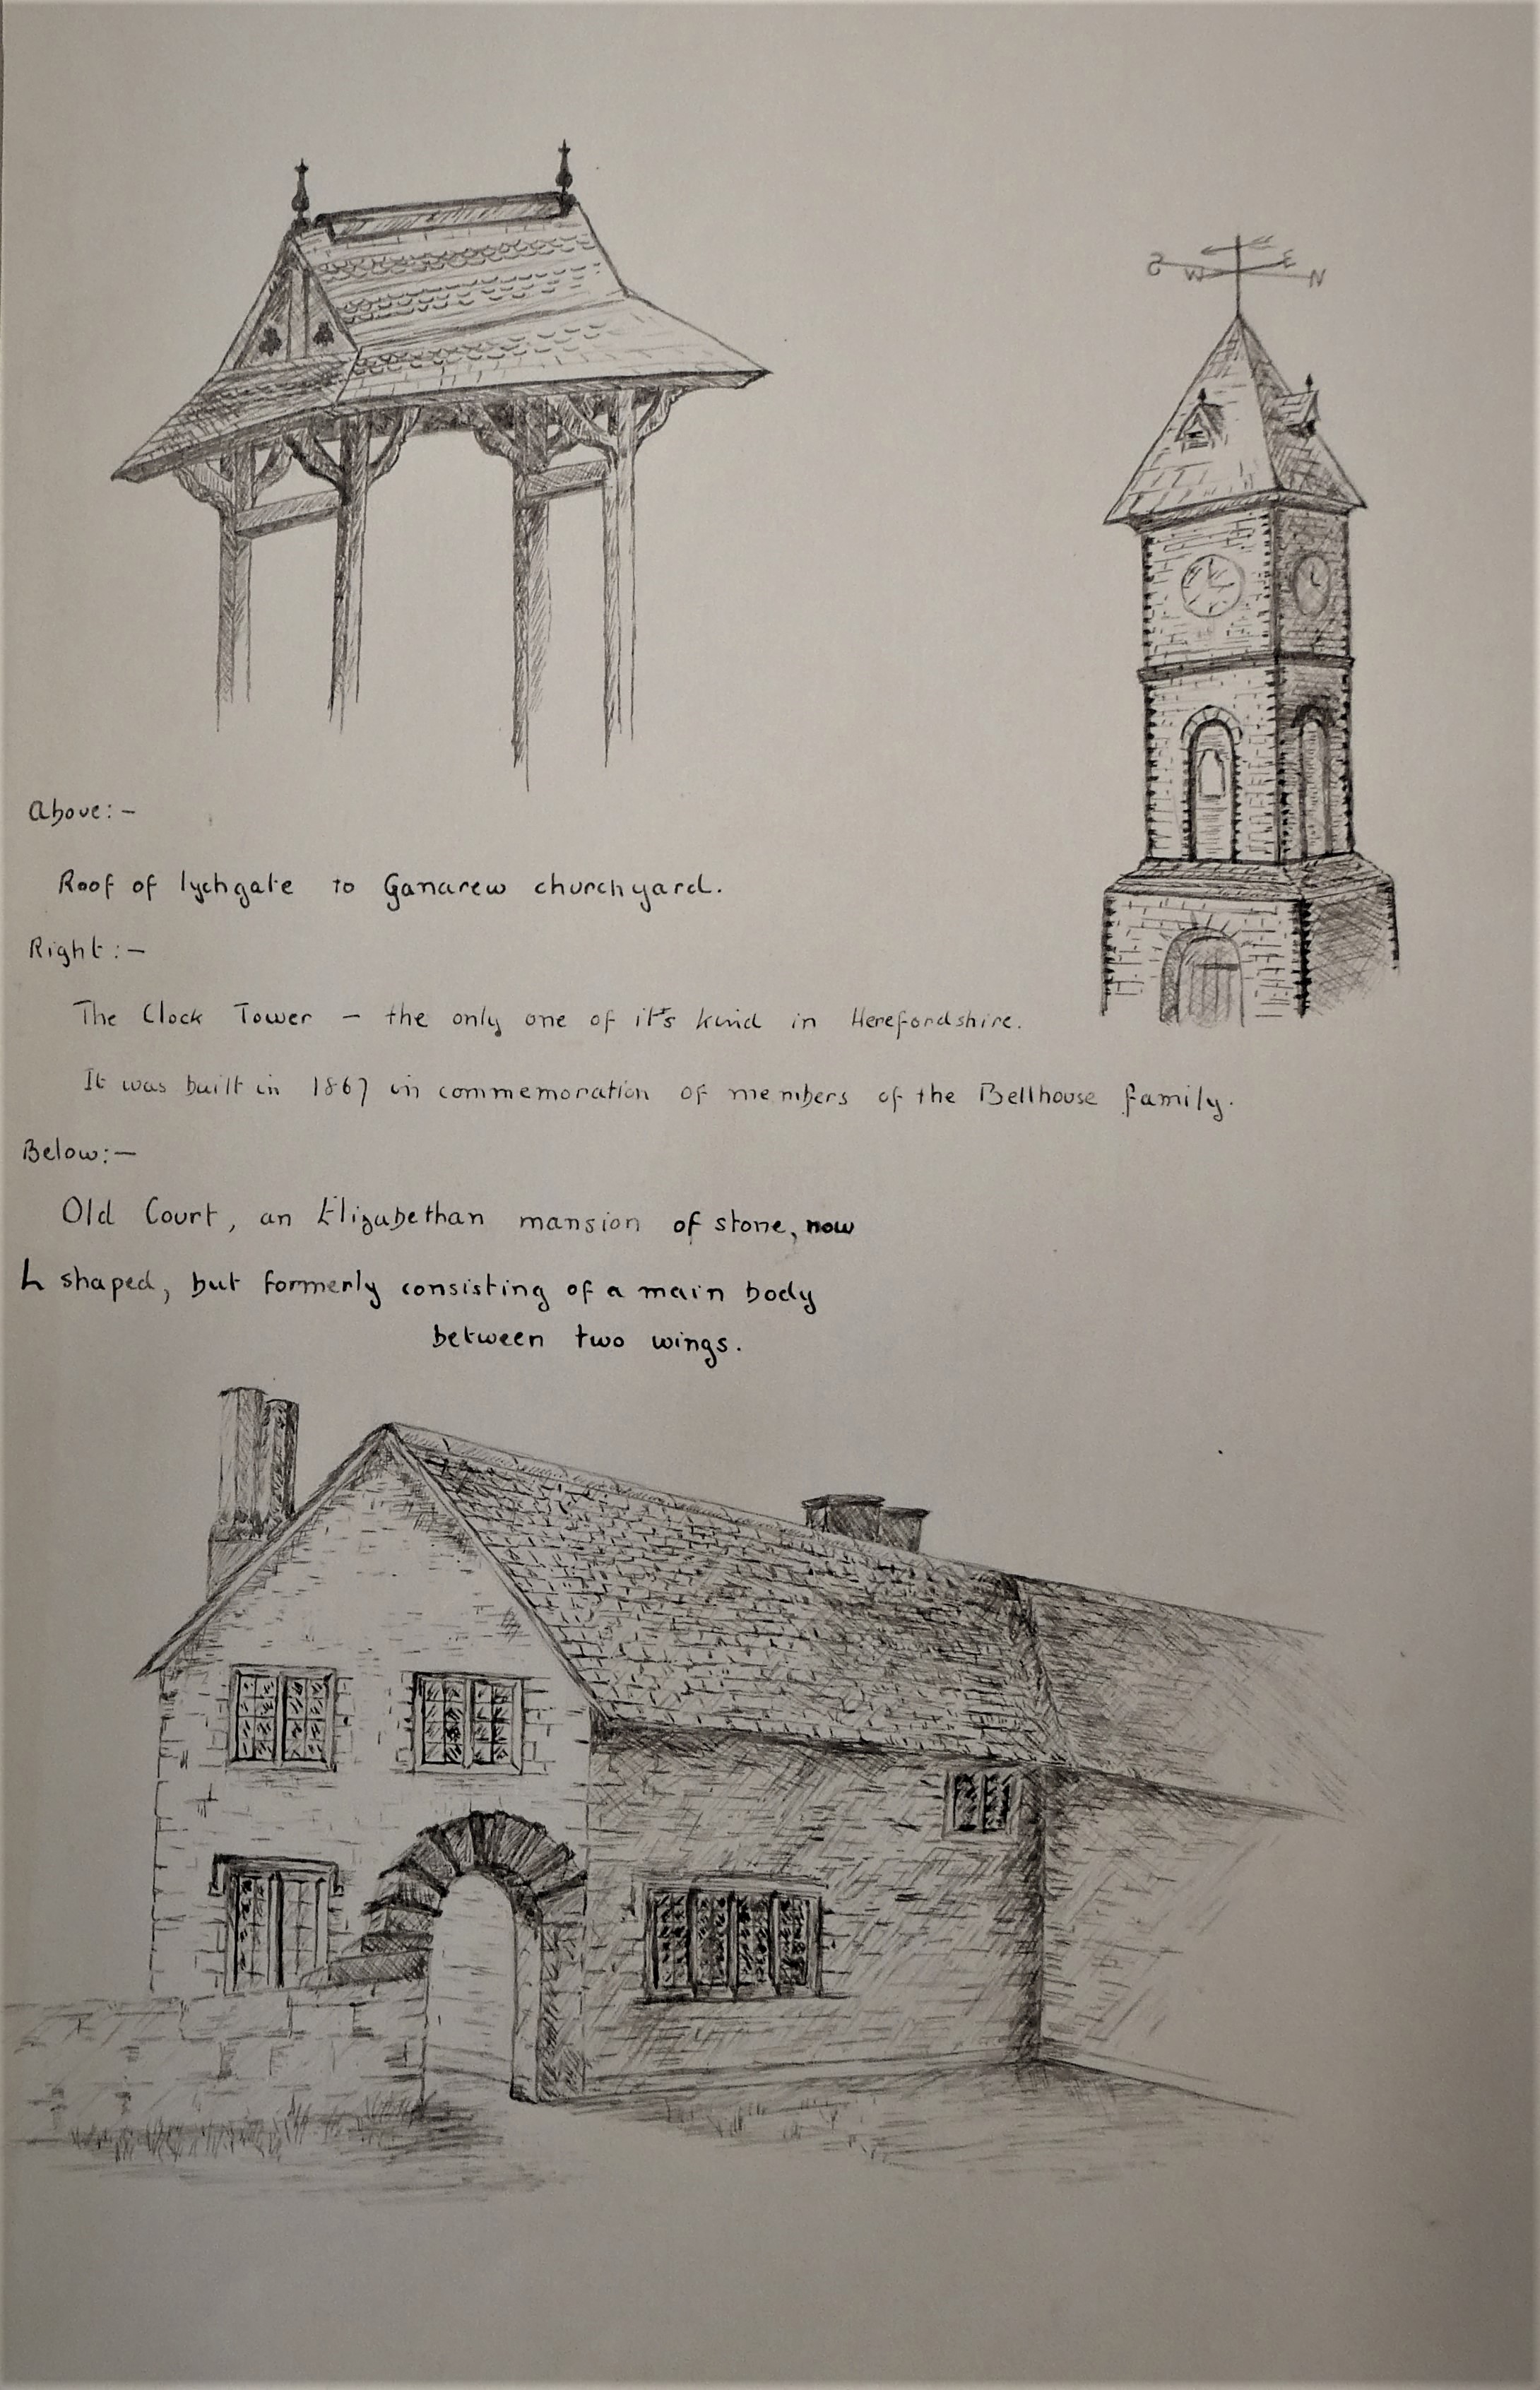 S W E N
Above:-
Roof of lychgate to Ganarew churchyard.
Right:-
The Clock Tower - the only one of it's kind in Herefordshire.
It was built in 1867 in commemoration of members of the Bellhouse family.
Below:-
Old Court, an Elizabethan mansion of stone, now
L shaped, but formerly consisting of a main body
between two wings.